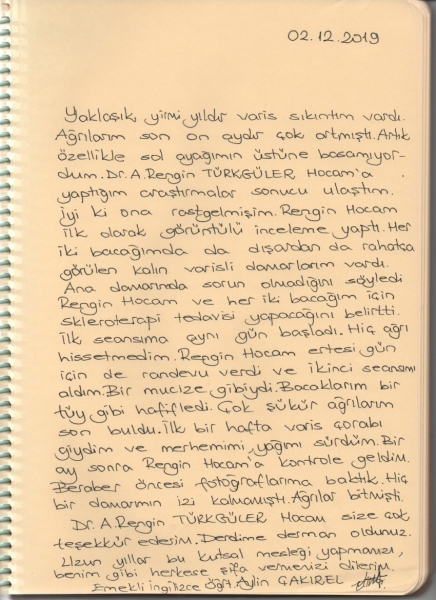 02.12.2019
Yaklaşık, yirmi yıldır varis sıkıntım vardı.
Ağrılarım son on aydır çok artmıştı. Artık
özellikle sol ayağımın üstüne basamıyor-
dum. Dr. A. Rengin TÜRKGÜLER Hocam'a
yaptığım araştırmalar sonucu ulaştım.
İyi ki ona rastgelmişim. Rengin Hocam
ilk olarak görüntülü inceleme yaptı. Her
iki bacağımda da dışardan da rahatça
görülen kalın varisli damarlarım vardı.
Ana damarımda sorun olmadığını söyledi
Rengin Hocam ve her iki bacağım için
skleroterapi tedavisi yapacağını belirtti.
İlk seansıma aynı gün başladı. Hiç ağrı
hissetmedim. Rengin Hocam ertesi gün
için de randevu verdi ve ikinci seansımı
aldım. Bir mucize gibiydi. Bacaklarım bir
tüy gibi hafifledi. Çok şükür ağrılarım
son buldu. İlk bir hafta varis çorabı
giydim ve merhemimi, yağımı sürdüm. Bir
ay sonra Rengin Hocam'a kontrole geldim.
Beraber öncesi fotoğraflarıma baktık. Hiç
bir damarımın izi kalmamıştı. Ağrılar bitmişti.
Dr. A. Rengin TÜRKGÜLER Hocam size çok
teşekkür ederim. Derdime derman oldunuz.
Uzun yıllar bu kutsal mesleği yapmanızı,
benim gibi herkese şifa vermenizi dilerim.
Emekli İngilizce Öğrt. Aylin ÇAKIREL